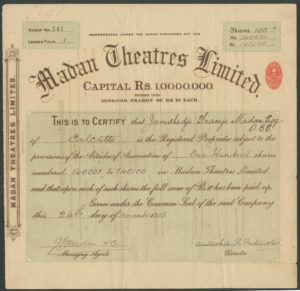 INCORPORATED UNDER THE INDIAN COMPANIES ACT 1913
Shares 100
No. 140001
To 140100
Madan Theatres Limited.
CAPITAL RS. 10,000,000.
DIVIDED INTO
1,000,000, SHARES OF RS. 10 EACH.
THIS IS TO CERTIFY that Jamshedji Framji Madan Esq
O.B.E.
of Calcutta is the Registered Proprietor subject to
the provisions of the Articles of Association of One Hundred shares
numbered 140001 to 140100 in Madan Theatres Limited
and that upon each of such shares the full sum of Rs has been paid up.
Given under the Common Seal of the said Company
this 24th day of November 1919.
Managing Agents
Director
MADAN THEATRES LIMITED.